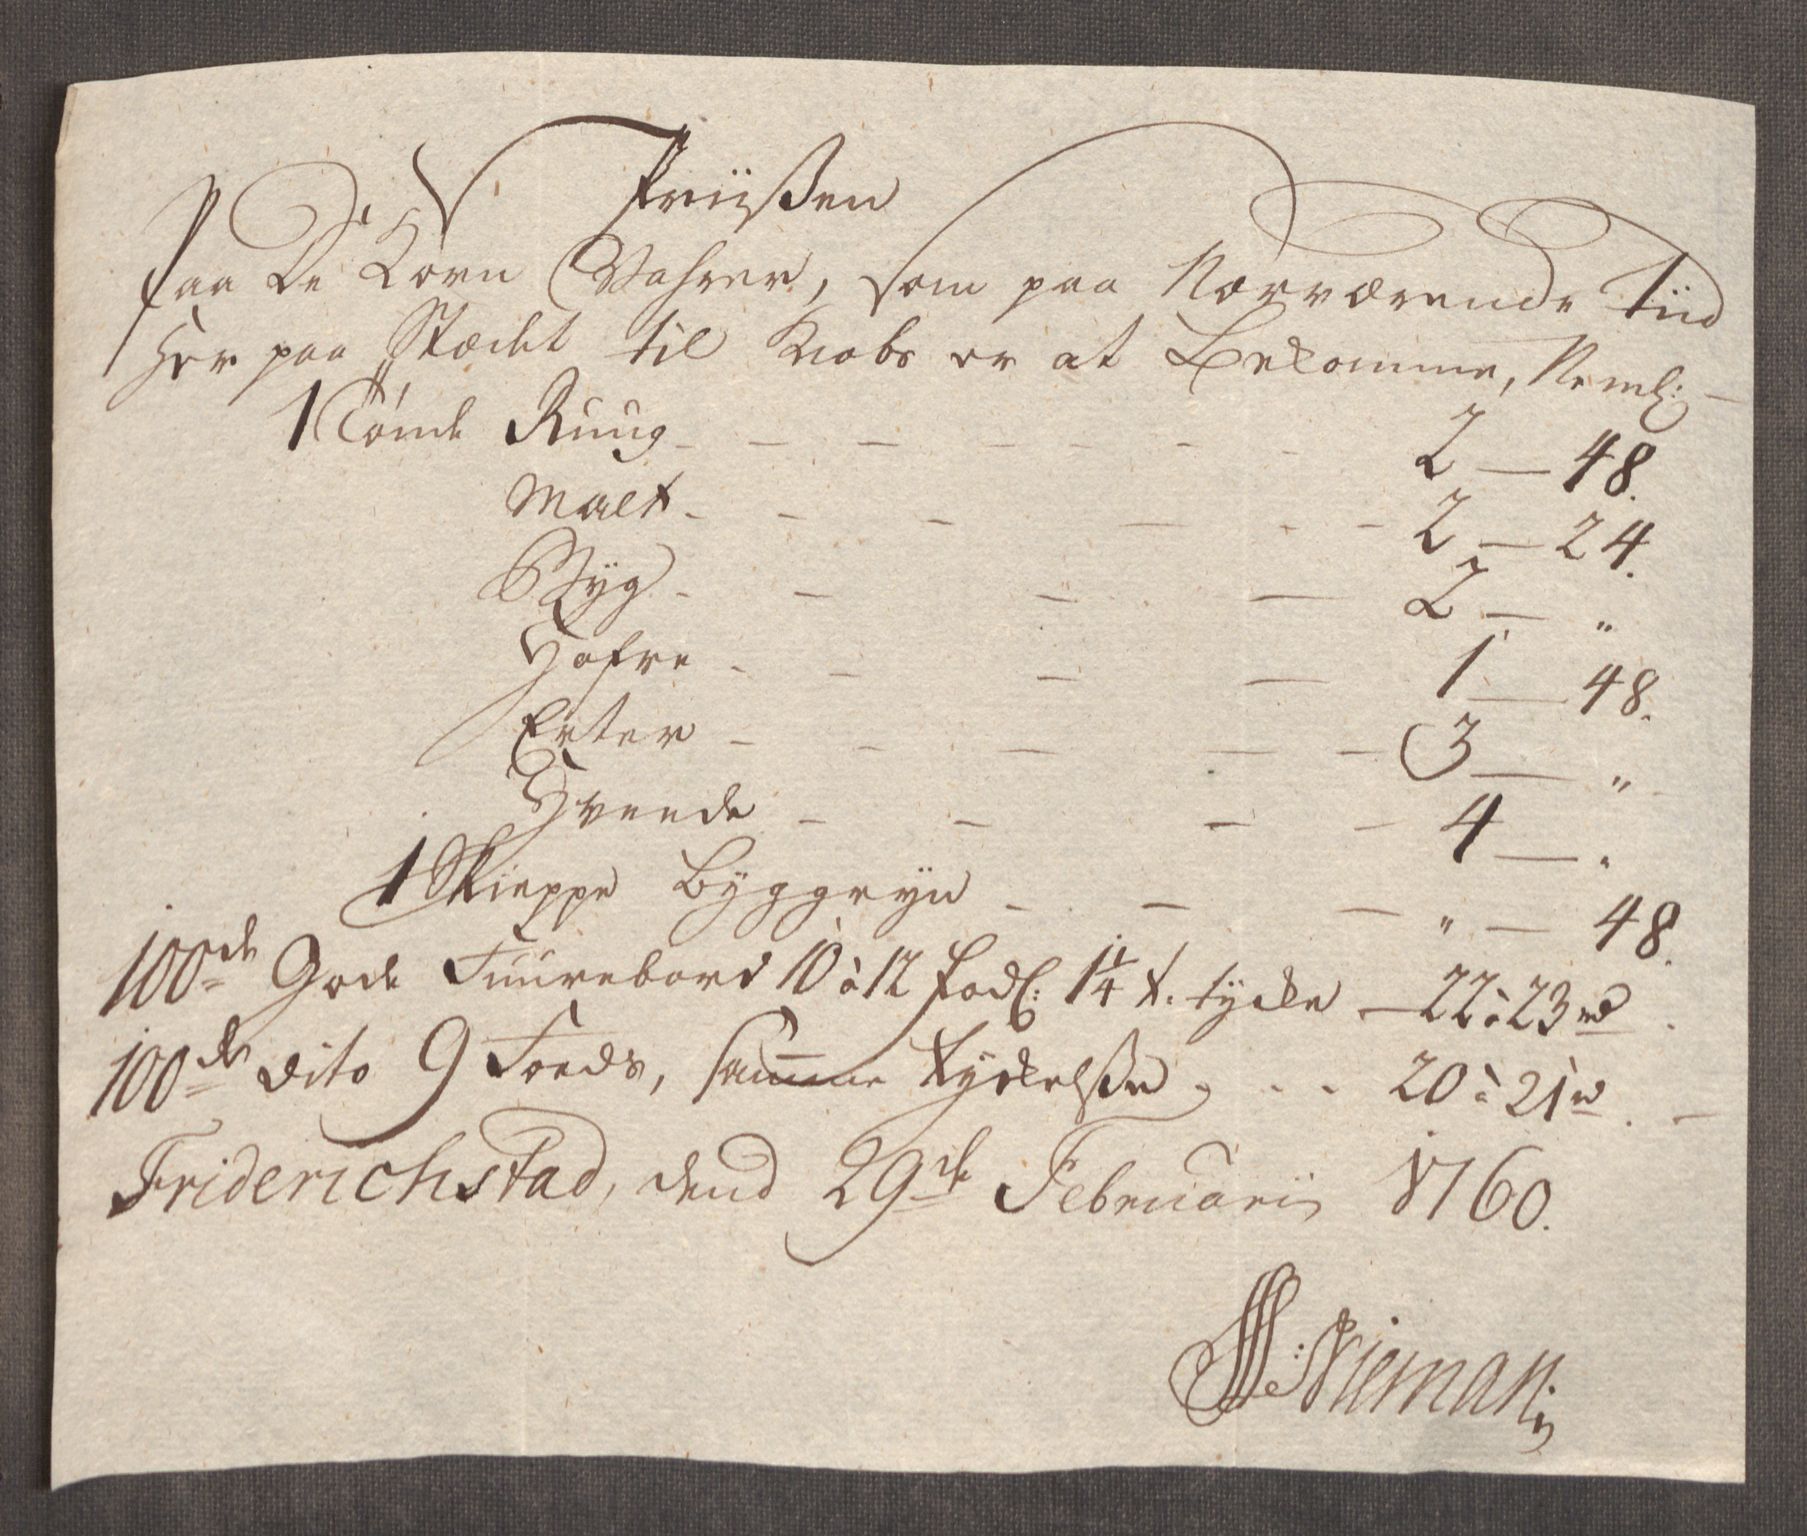 Priißen
Paa De Korn Wahrer, som paa Nærværende Tiid
Her paa Stædet til Kiøbs er at Bekomme, Neml:
1 Tønde Ruug - - - - - - 2 — 48.
Malt - - - - - 2 — 24.
Byg - - - - 2 — "
Hafre - - - - 1 — 48.
Erter - - - - - 3 — "
Hveede - - - - 4 — "
1 Skieppe Byggryn - - - " — 48.
100de Gode Fuurebord 10 à 12 fod l: 1 1/4 t. tycke — 22 à 23 rd.
100de dito 9 Foeds, samme tyckelße, - - 20 à 21 rd. —
Friderichstad, dend 29de Februarii 1760.
Nieman